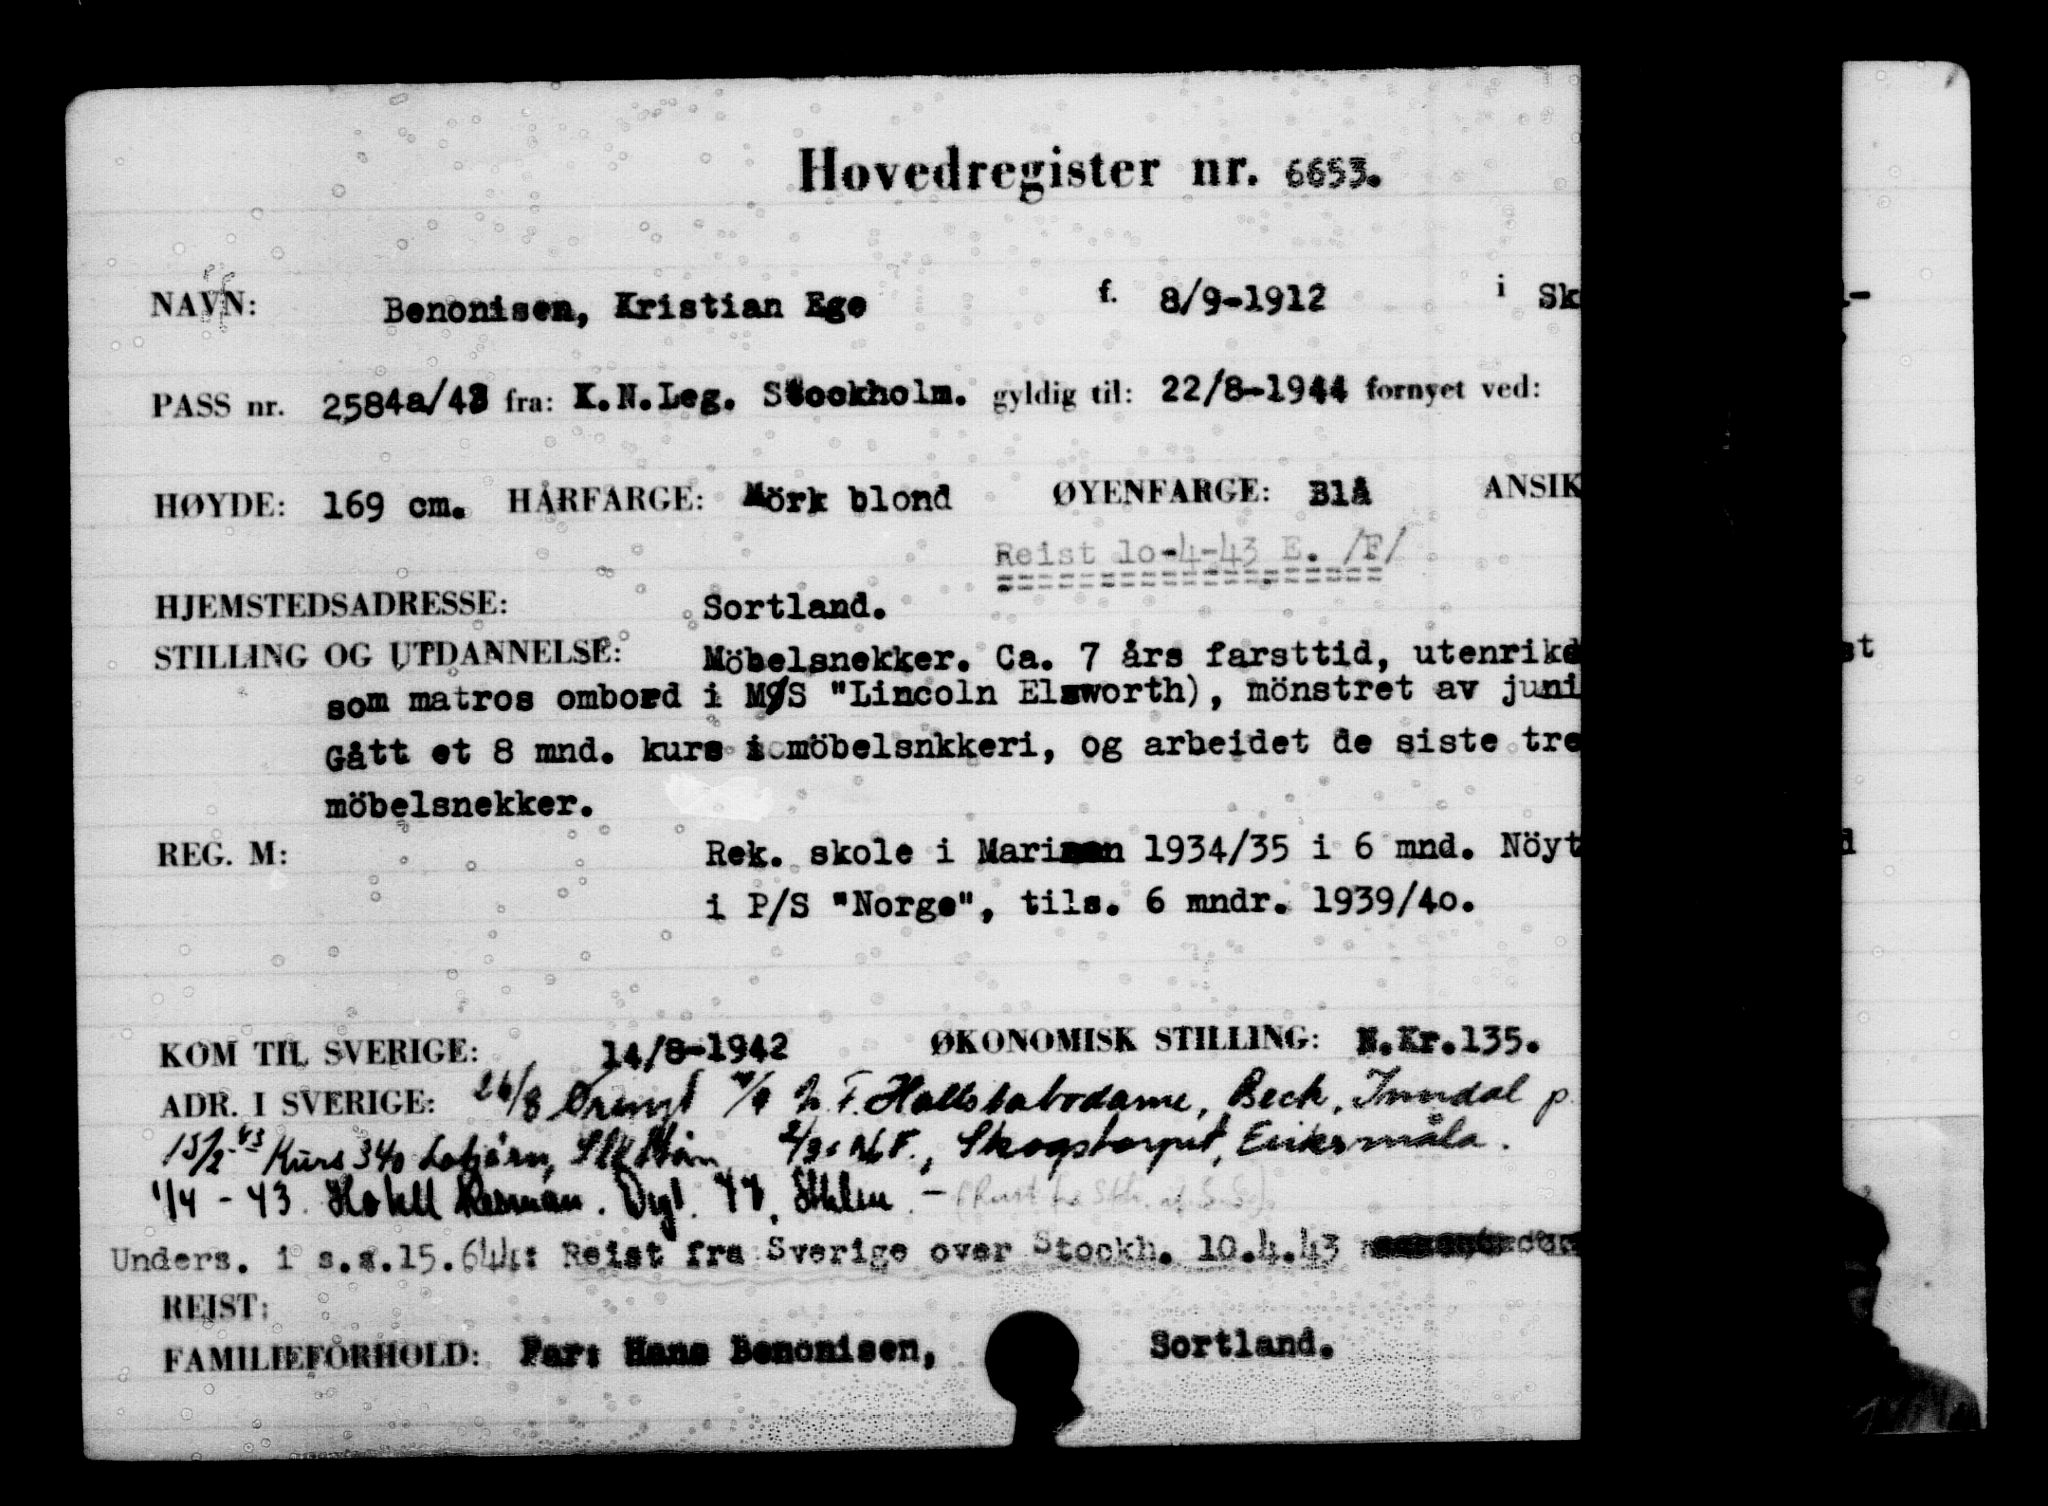 Hovedregister nr. 6653.
NAVN: Benonisen, Kristian Ege f. 8/9-1912 i Sk
PASS nr. 2584a/43 fra: K.N.Leg. Stockholm. gyldig til: 22/8-1944 fornyet ved:
HØYDE: 169 cm. HÅRFARGE: Mörk blond ØYENFARGE: Blå ANSIK
Reist 1o-4-43 E. /F/
HJEMSTEDSADRESSE: Sortland.
STILLING OG UTDANNELSE: Möbelsnekker. Ca. 7 års farsttid, utenriks st
som matros ombord i M/S "Lincoln Elsworth), mönstret av juni
Gått et 8 mnd. kurs i möbelsnkkeri, og arbeidet de siste tre
möbelsnekker.
REG. M: Rek. skole i Marinen 1934/35 i 6 mnd. Nöyt d
i P/S "Norge", tils. 6 mndr. 1939/4o.
KOM TIL SVERIGE: 14/8-1942 ØKONOMISK STILLING: N.Kr.135.
ADR. I SVERIGE: 26/8 Beck, Inndal p.
15/2-43 Kurs 340 2/3 Skogstorpet, Eriksmåla.
1/4 - 43. Hotell 44, Sthlm -
Unders. i s.s.15.644: Reist fra Sverige over Stockh. 10.4.43
REIST:
FAMILIEFORHOLD: Far: Hans Benonisen, Sortland.